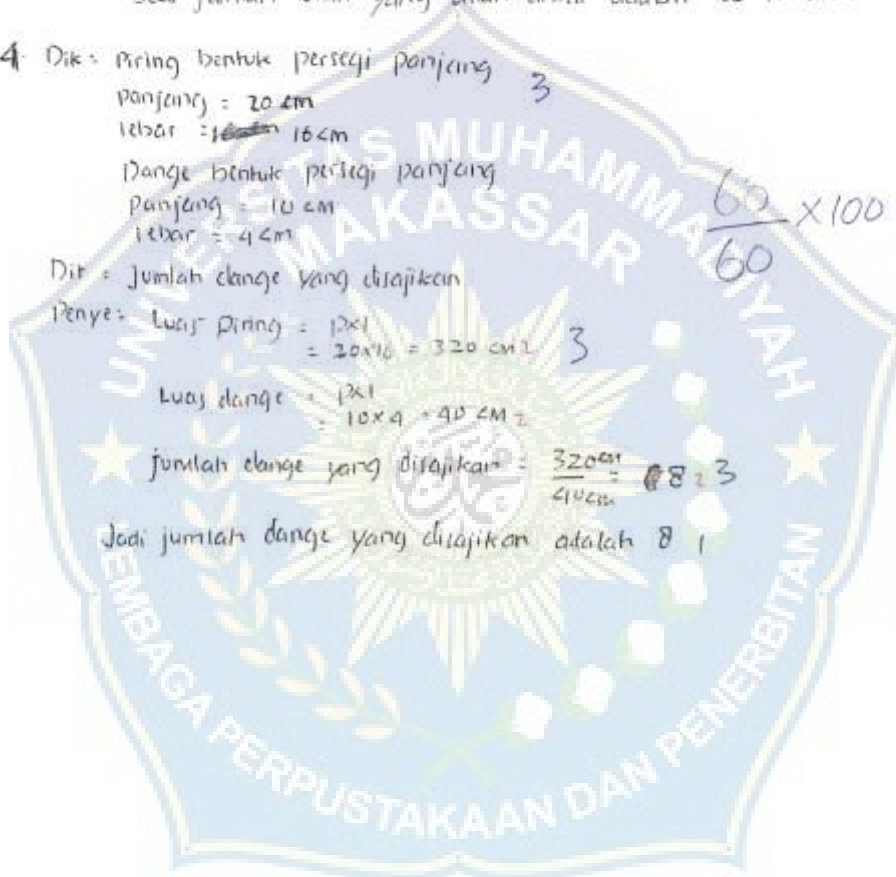 jumlah yang akan adalah
4. Dik : Piring bentuk persegi panjang 3
panjang = 20 cm
lebar = 16 cm
Dange bentuk persegi panjang
panjang = 10 cm
lebar = 4 cm
60/60 X 100
Dit : Jumlah dange yang disajikan
Penye : Luas piring = pxl
= 20x16 = 320 cm2 3
Luas dange = pxl
= 10x4 = 40 cm2
jumlah dange yang disajikan = 320cm/40cm = 8 3
Jadi jumlah dange yang disajikan adalah 8 1
UNIVERSITAS MUHAMMADIYAH
MAKASSAR
LEMBAGA PERPUSTAKAAN DAN PENERBITAN
محمد